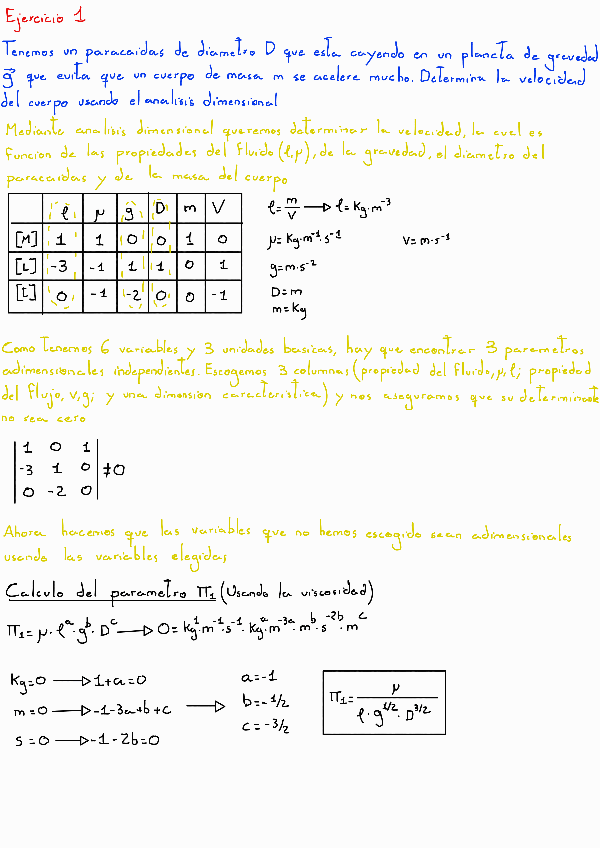 Ejercicio 1
Tenemos un paracaidas de diametro D que esta cayendo en un planeta de gravedad
g⃗ que evita que un cuerpo de masa m se acelere mucho. Determina la velocidad
del cuerpo usando el analisis dimensional
Mediante analisis dimensional queremos determinar la velocidad, la cual es
funcion de las propiedades del fluido (ρ,μ), de la gravedad, el diametro del
paracaidas y de la masa del cuerpo
ρ μ g D m V
[M] 1 1 0 0 1 0
[L] -3 -1 1 1 0 1
[t] 0 -1 -2 0 0 -1
ρ = m/V → ρ = Kg·m⁻³
μ = Kg·m⁻¹·s⁻¹ v = m·s⁻¹
g = m·s⁻²
D = m
m = Kg
Como tenemos 6 variables y 3 unidades basicas, hay que encontrar 3 parametros
adimensionales independientes. Escogemos 3 columnas (propiedad del fluido, μ, ρ; propiedad
del flujo, v, g; y una dimension caracteristica) y nos aseguramos que su determinante
no sea cero
1 0 1
-3 1 0 ≠0
0 -2 0
Ahora hacemos que las variables que no hemos escogido sean adimensionales
usando las variables elegidas
Calculo del parametro Π₁ (Usando la viscosidad)
Π₁ = μ·ρᵃ·gᵇ·Dᶜ → 0 = Kg¹·m⁻¹·s⁻¹·Kgᵃ·m⁻³ᵃ·mᵇ·s⁻²ᵇ·mᶜ
Kg=0 → 1+a=0
m=0 → -1-3a+b+c
s=0 → -1-2b=0
→
a=-1
b=-1/2
c=-3/2
Π₁ = μ / (ρ·g^1/2·D^3/2)